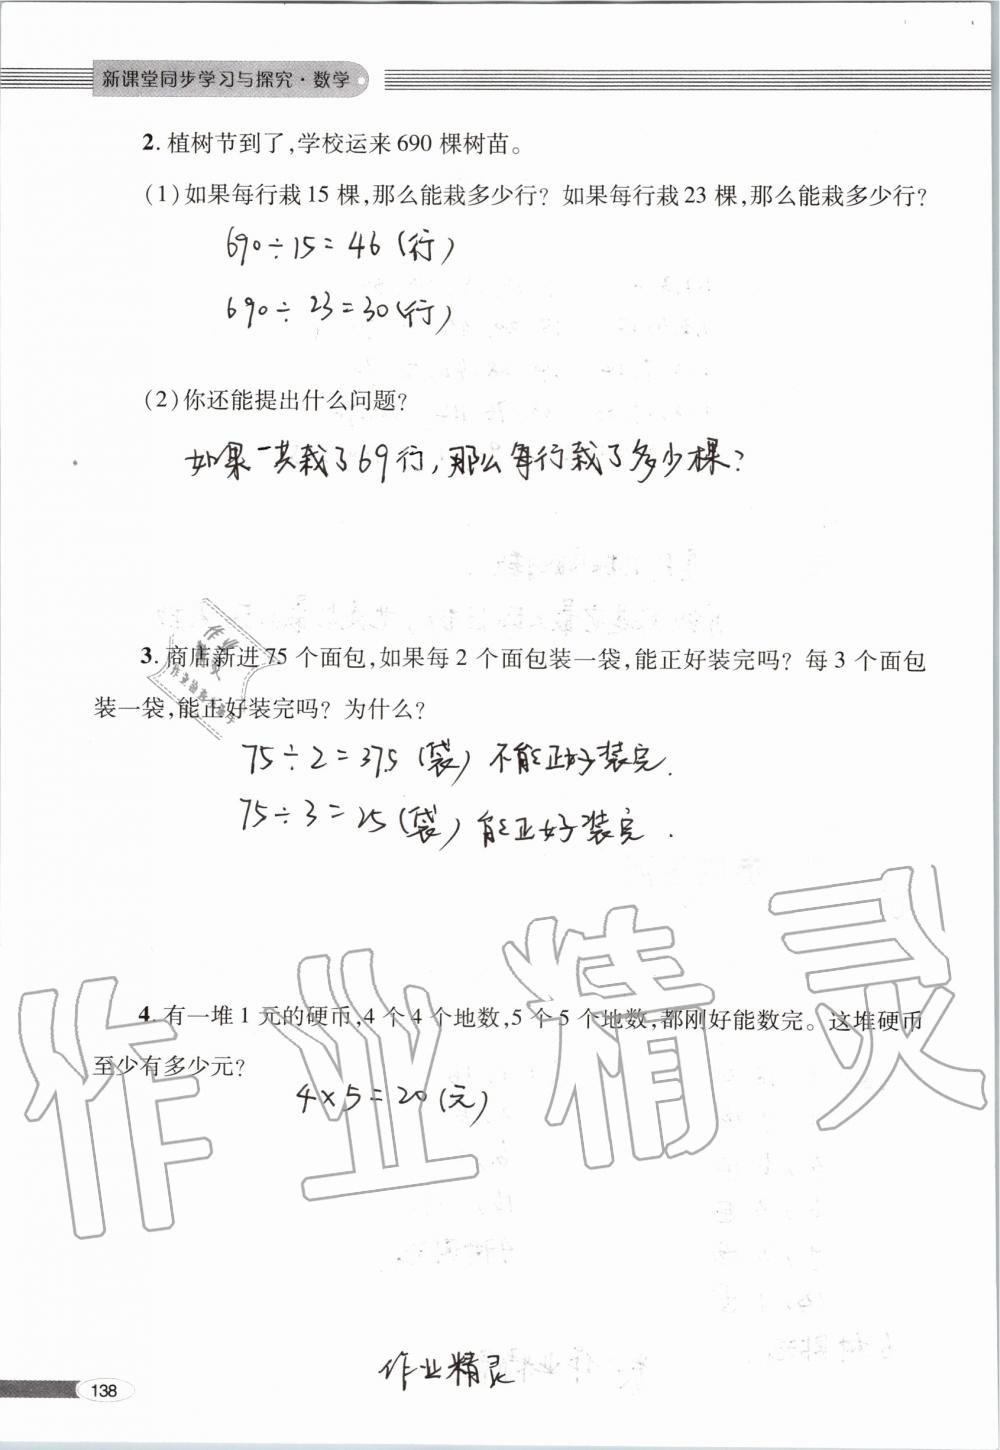 新课堂同步学习与探究·数学
2. 植树节到了,学校运来 690 棵树苗。
(1)如果每行栽 15 棵,那么能栽多少行? 如果每行栽 23 棵,那么能栽多少行?
690÷15=46(行)
690÷23=30(行)
(2)你还能提出什么问题?
如果一共栽了69行,那么每行栽了多少棵?
3. 商店新进 75 个面包,如果每 2 个面包装一袋,能正好装完吗? 每 3 个面包
装一袋,能正好装完吗? 为什么?
75÷2=375(袋) 不能正好装完.
75÷3=25(袋) 能正好装完.
4. 有一堆 1 元的硬币,4 个 4 个地数,5 个 5 个地数,都刚好能数完。这堆硬币
至少有多少元?
4×5=20(元)
作业精灵
作业精灵
138